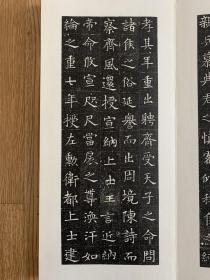 孝其年重出聘齊受天子之命問
諸侯之俗延譽而出周境陳詩而
察齊風還授宣納上士王言近納
帝命攸宣咫尺當扆之尊渙汗如
綸之重七年授左勳衛都上士建